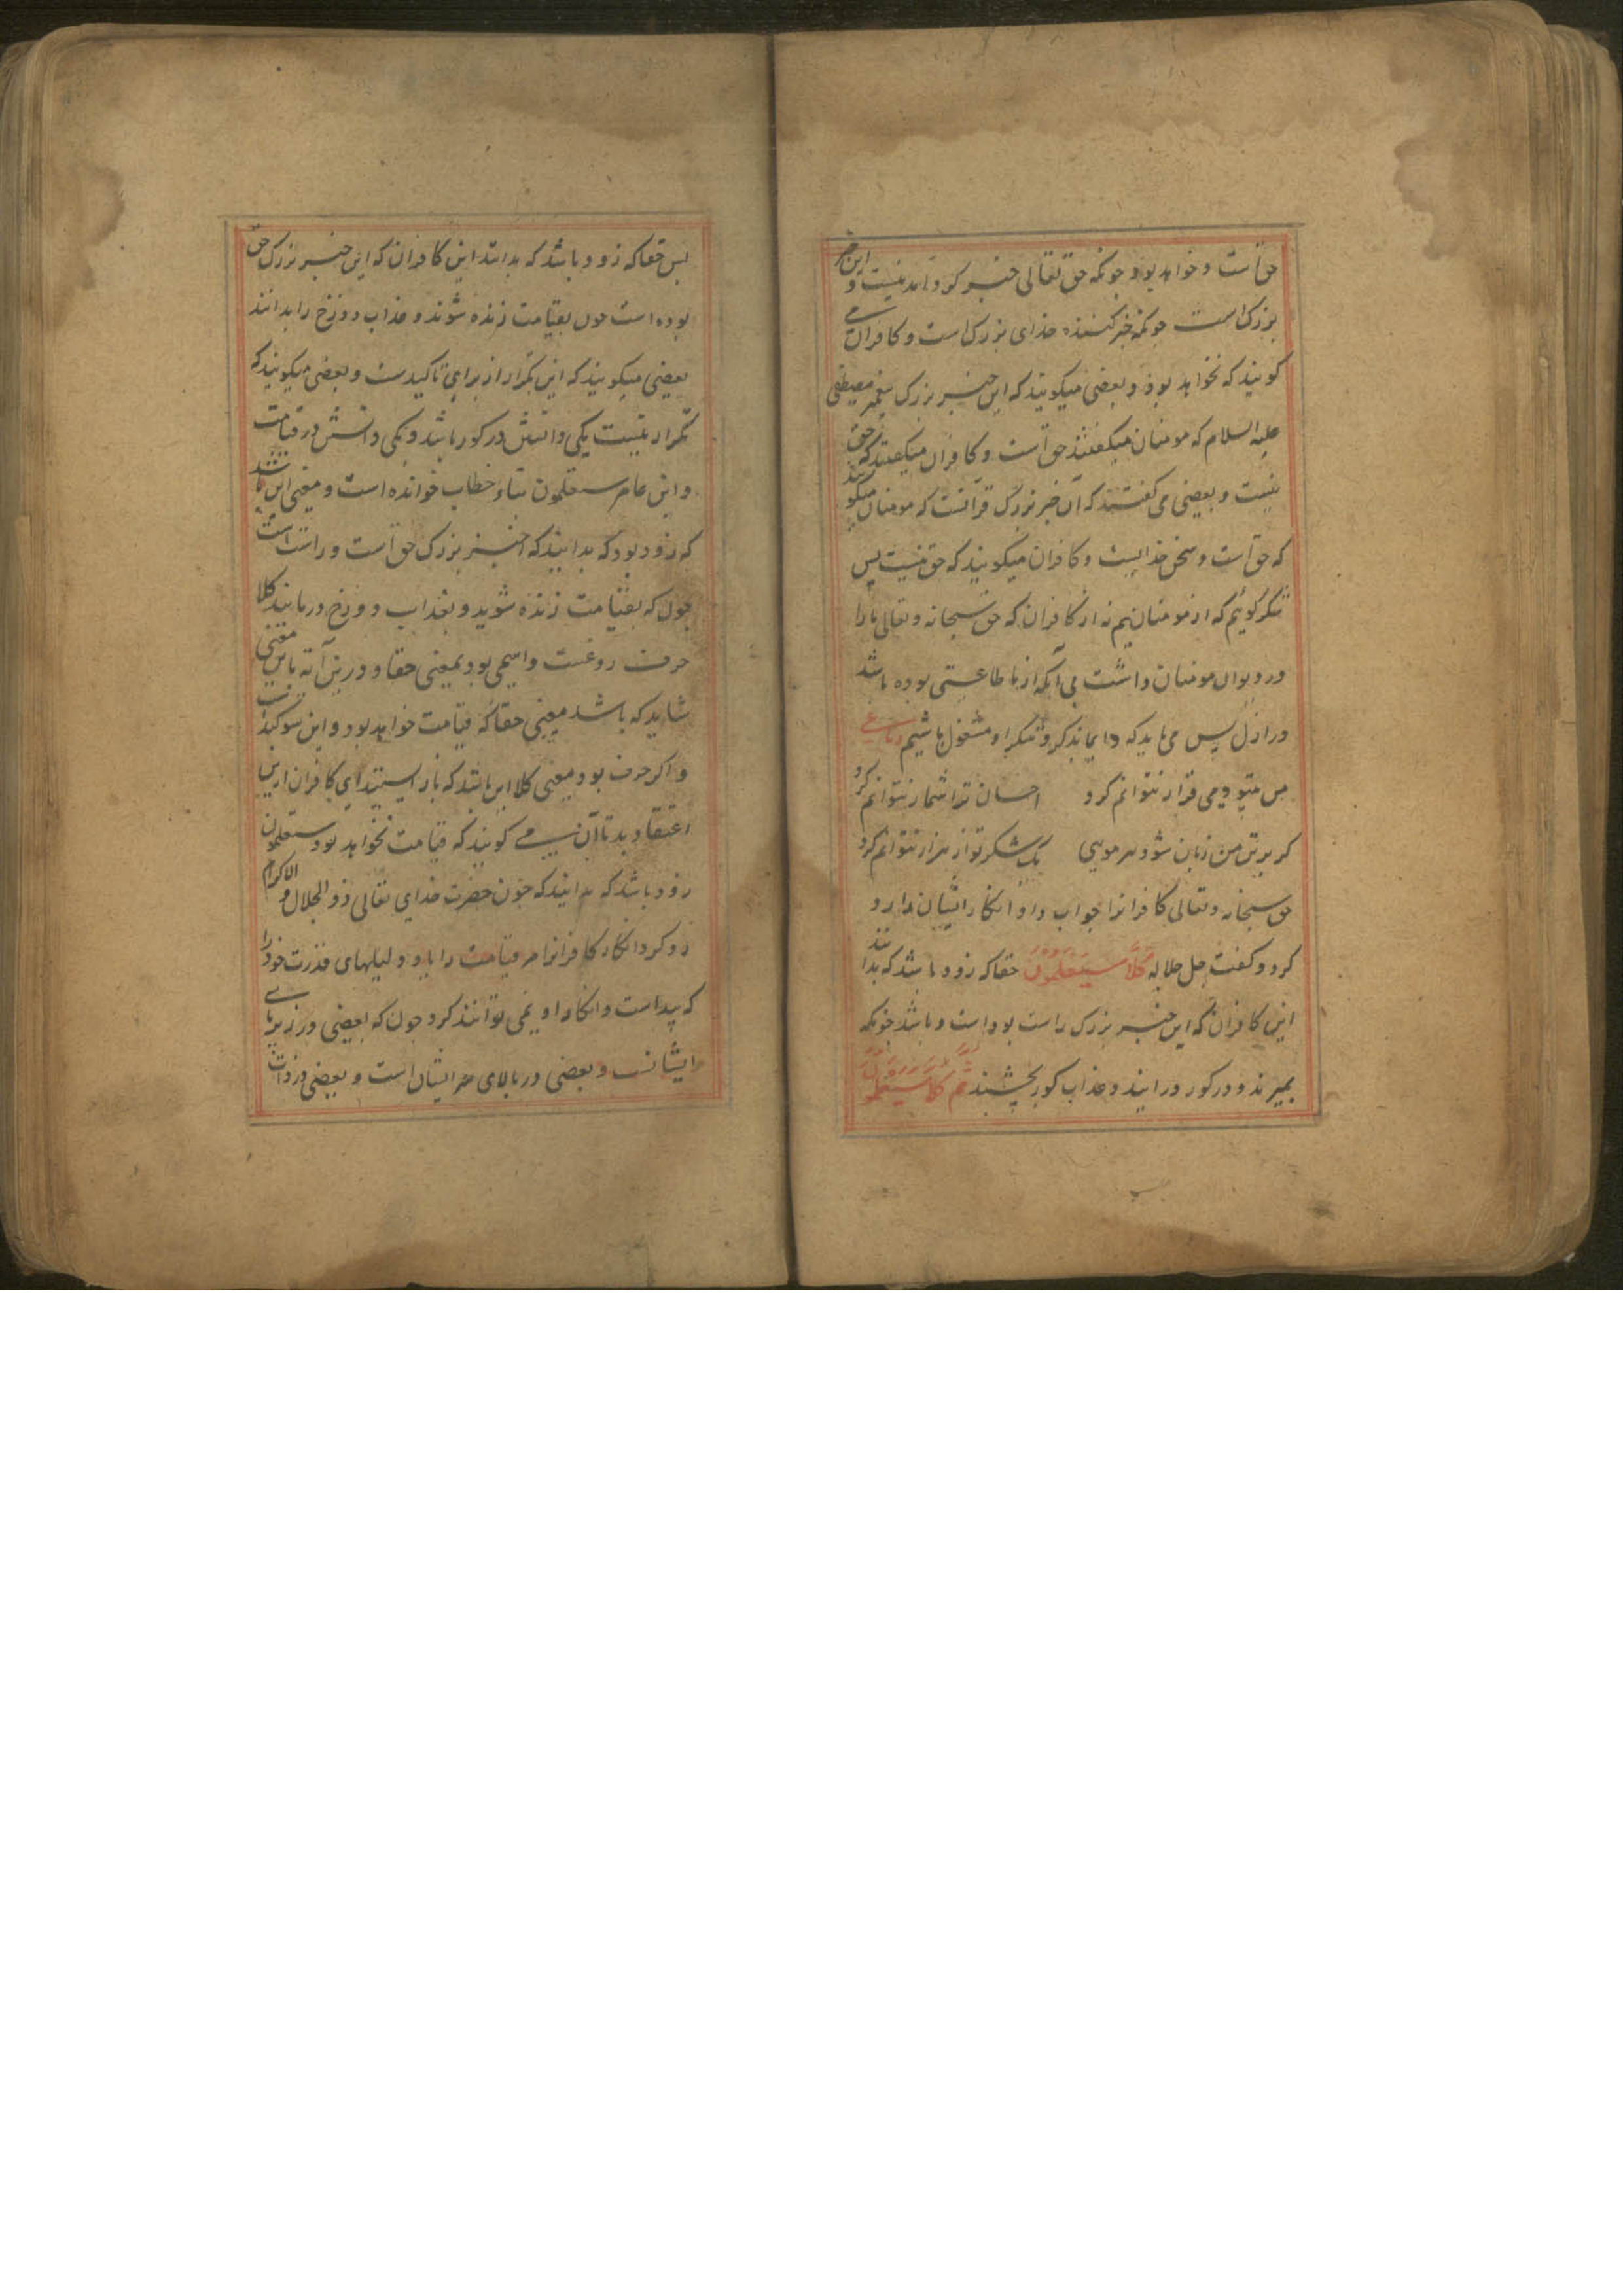 حق است و خواهد بود چونکه حق تعالی خبر کرد آمدنیست و این خبر
بزرک است چونکه خبر کننده خدای بزرک است و کافران می
کویند که نخواهد بود و بعضی میکویند که این خبر بزرک پیغمبر مصطفی
علیه السلام که مومنان میکفتند حق است و کافران میکفتند که حق
نیست و بعضی می کفتند که آن خبر بزرک قرآنست که مومنان میکویند
که حق است و سخن خدایست و کافران میکویند که حق نیست پس
شکر کوئیم که از مومنانیم نه از کافران که حق سبحانه و تعالی ما را
در دیوان مومنان داشت بی آنکه از ما طاعتی بوده باشد
در ازل پس می باید که دایما بذکر و شکر او مشغول باشیم رباعی
من بتو دمی قرار نتوانم کرد احسان ترا شمار نتوانم کرد
کر بر تن من زبان شود هر مویی یک شکر تو از هزار نتوانم کرد
حق سبحانه و تعالی کافرانرا جواب داد و انکار ایشان را رد
کرد و کفت جل جلاله کلا سیعلمون حقا که زود باشد که بدانند
این کافران که این خبر بزرک راست بود است و باشد چونکه
بمیرند و در کور درآیند و عذاب کور بچشند ثم کلا سیعلمون
پس حقا که زود باشد که بدانند این کافران که این خبر بزرک حق
بوده است چون بقیامت زنده شوند و عذاب دوزخ را بدانند
بعضی میکویند که این تکرار از برای تاکیدست و بعضی میکویند که
تکرار نیست یکی دانستن در کور باشد و یکی دانستن در قیامت
و ابن عامر ستعلمون بتاء خطاب خوانده است و معنی این باشد
که زود بود که بدانید که این خبر بزرک حق است و راست است
چون که بقیامت زنده شوید و بعذاب دوزخ درمانید کلا
حرف ردعست و اسمی بود بمعنی حقا و درین آیة باین معنی
شاید که باشد معنی حقا که قیامت خواهد بود و این سوکندست
و اکر حرف بود معنی کلا این باشد که باز ایستید ای کافران ازین
اعتقاد بد تا آن می کویند که قیامت نخواهد بود ستعلمون
زود باشد که بدانید که چون حضرت خدای تعالی ذو الجلال و الاکرام
رد کرد انکار کافرانرا مر قیامت را یاد دلیلهای قدرت خود را
که پیداست و انکار او نمی توانند کرد چون که بعضی در زیر پای
ایشانست و بعضی در بالای سر ایشان است و بعضی در ذات